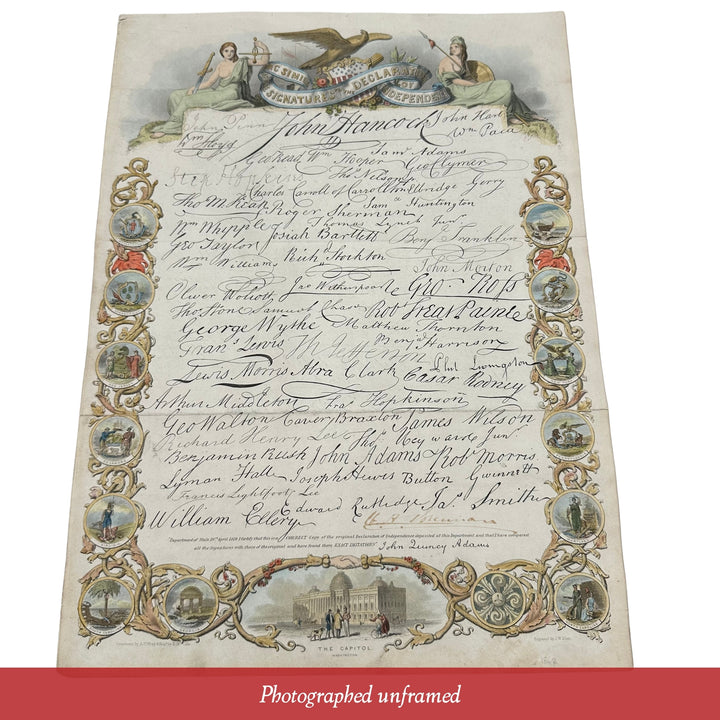 SIGNATURES TO THE DECLARATION
OF INDEPENDENCE
John Penn John Hancock John Hart
Wm Paca
Geo Read Wm Hooper Saml Adams Geo Clymer
Step Hopkins Thos Nelson jr
Charles Carroll of Carrollton Elbridge Gerry
Tho M:Kean Roger Sherman Saml Huntington
Wm Whipple Thomas Lynch Junr
Geo Taylor Josiah Bartlett Benj Franklin
Wm Williams Richd Stockton John Morton
Oliver Wolcott Jno Witherspoon Geo Ross
Thos Stone Samuel Chase Robt Treat Paine
George Wythe Matthew Thornton
Frans Lewis Th Jefferson Benj Harrison
Lewis Morris Abra Clark Phil Livingston Caesar Rodney
Arthur Middleton Fras Hopkinson
Geo Walton Carter Braxton James Wilson
Richard Henry Lee Thos Heyward Junr
Benjamin Rush John Adams Robt Morris
Lyman Hall Joseph Hewes Button Gwinnett
Francis Lightfoot Lee
William Ellery Edward Rutledge Jas Smith
Department of State 19th April 1819 I Certify that this is a CORRECT Copy of the original Declaration of Independence deposited at this Department and that I have compared
all the Signatures with those of the original and have found them EXACT IMITATIONS. John Quincy Adams
THE CAPITOL
WASHINGTON
Photographed unframed